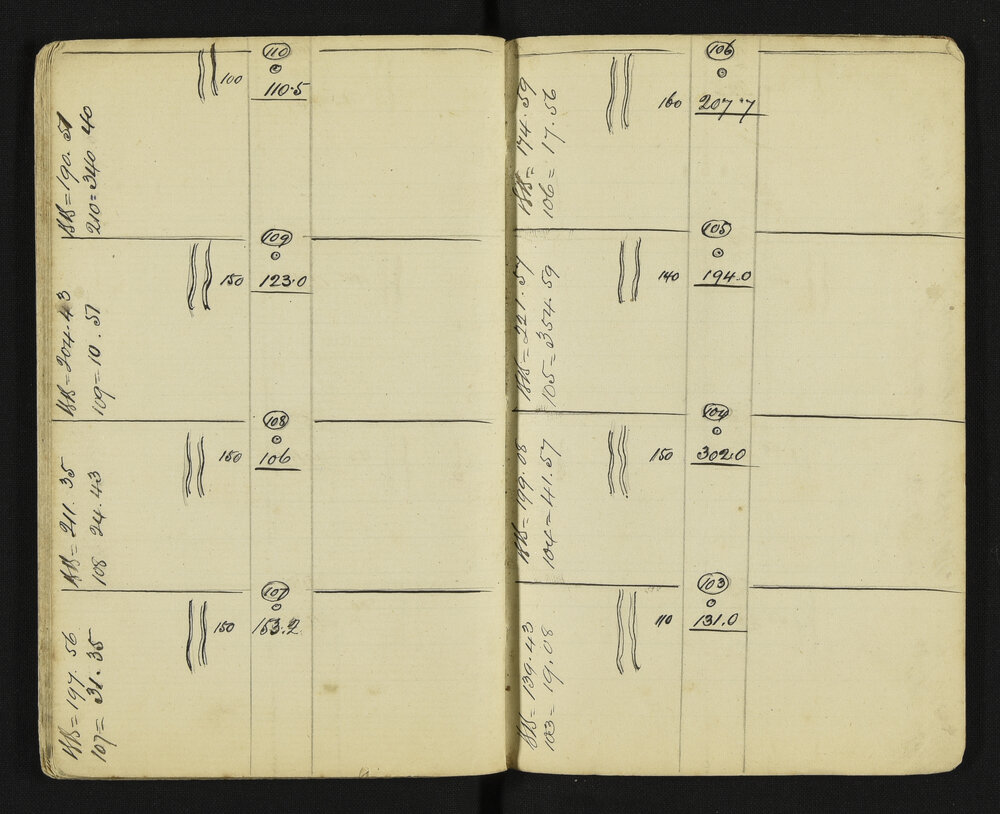 110
100 110.5
BB = 190.51
210 = 340.40
109
150 123.0
BB = 204.43
109 = 10.51
108
150 106
BB = 211.35
108 24.43
107
150 153.2
BB = 197.56
107 = 31.35
106
160 207.7
BB = 174.59
106 = 17.56
105
140 194.0
BB = 221.57
105 = 354.59
104
150 302.0
BB = 199.08
104 = 41.57
103
110 131.0
BB = 139.43
103 = 19.08